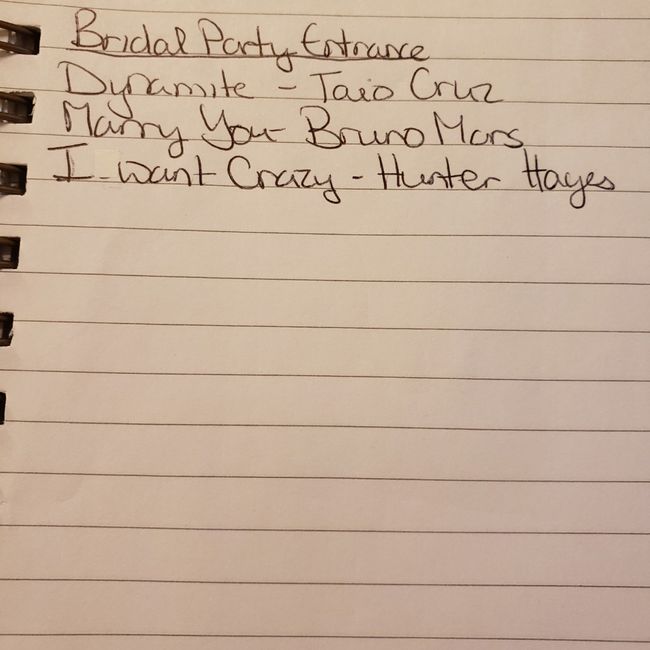 Bridal Party Entrance
Dynamite - Taio Cruz
Marry You - Bruno Mars
I want Crazy - Hunter Hayes